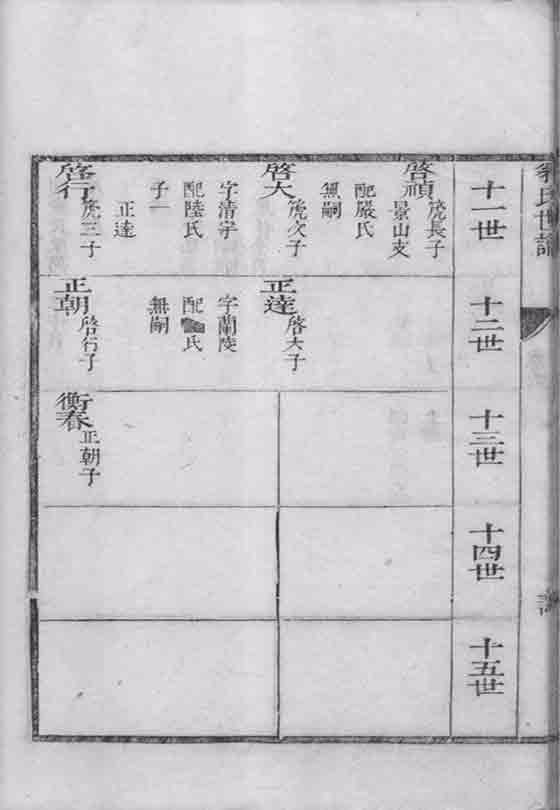 氏世譜
十一世
啓禎
箎長子
景山支
配嚴氏
無嗣
啓大
箎次子
字清宇
配陸氏
子一
正達
啓行
箎三子
十二世
正達
啓大子
字蘭陵
配氏
無嗣
正朝
啓行子
十三世
衡春
正朝子
十四世
十五世
譜